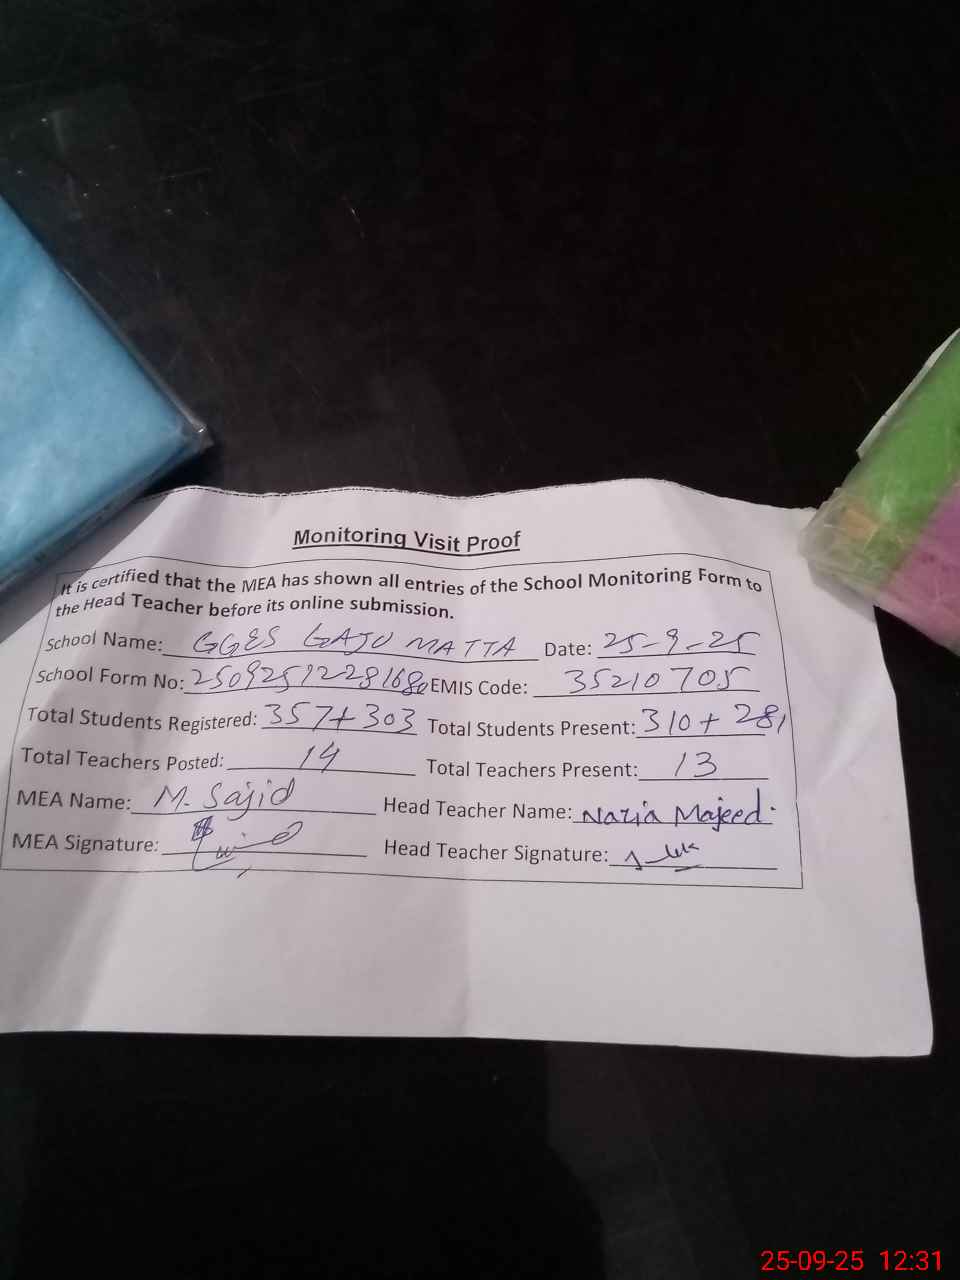 Monitoring Visit Proof
It is certified that the MEA has shown all entries of the School Monitoring Form to
the Head Teacher before its online submission.
School Name: GGES GAJU MATTA Date: 25-9-25
School Form No: EMIS Code: 35210705
Total Students Registered: 357+303 Total Students Present: 310+281
Total Teachers Posted: 14 Total Teachers Present: 13
MEA Name: M. Sajid Head Teacher Name: Nazia Majeed.
MEA Signature: Head Teacher Signature:
25-09-25 12:31